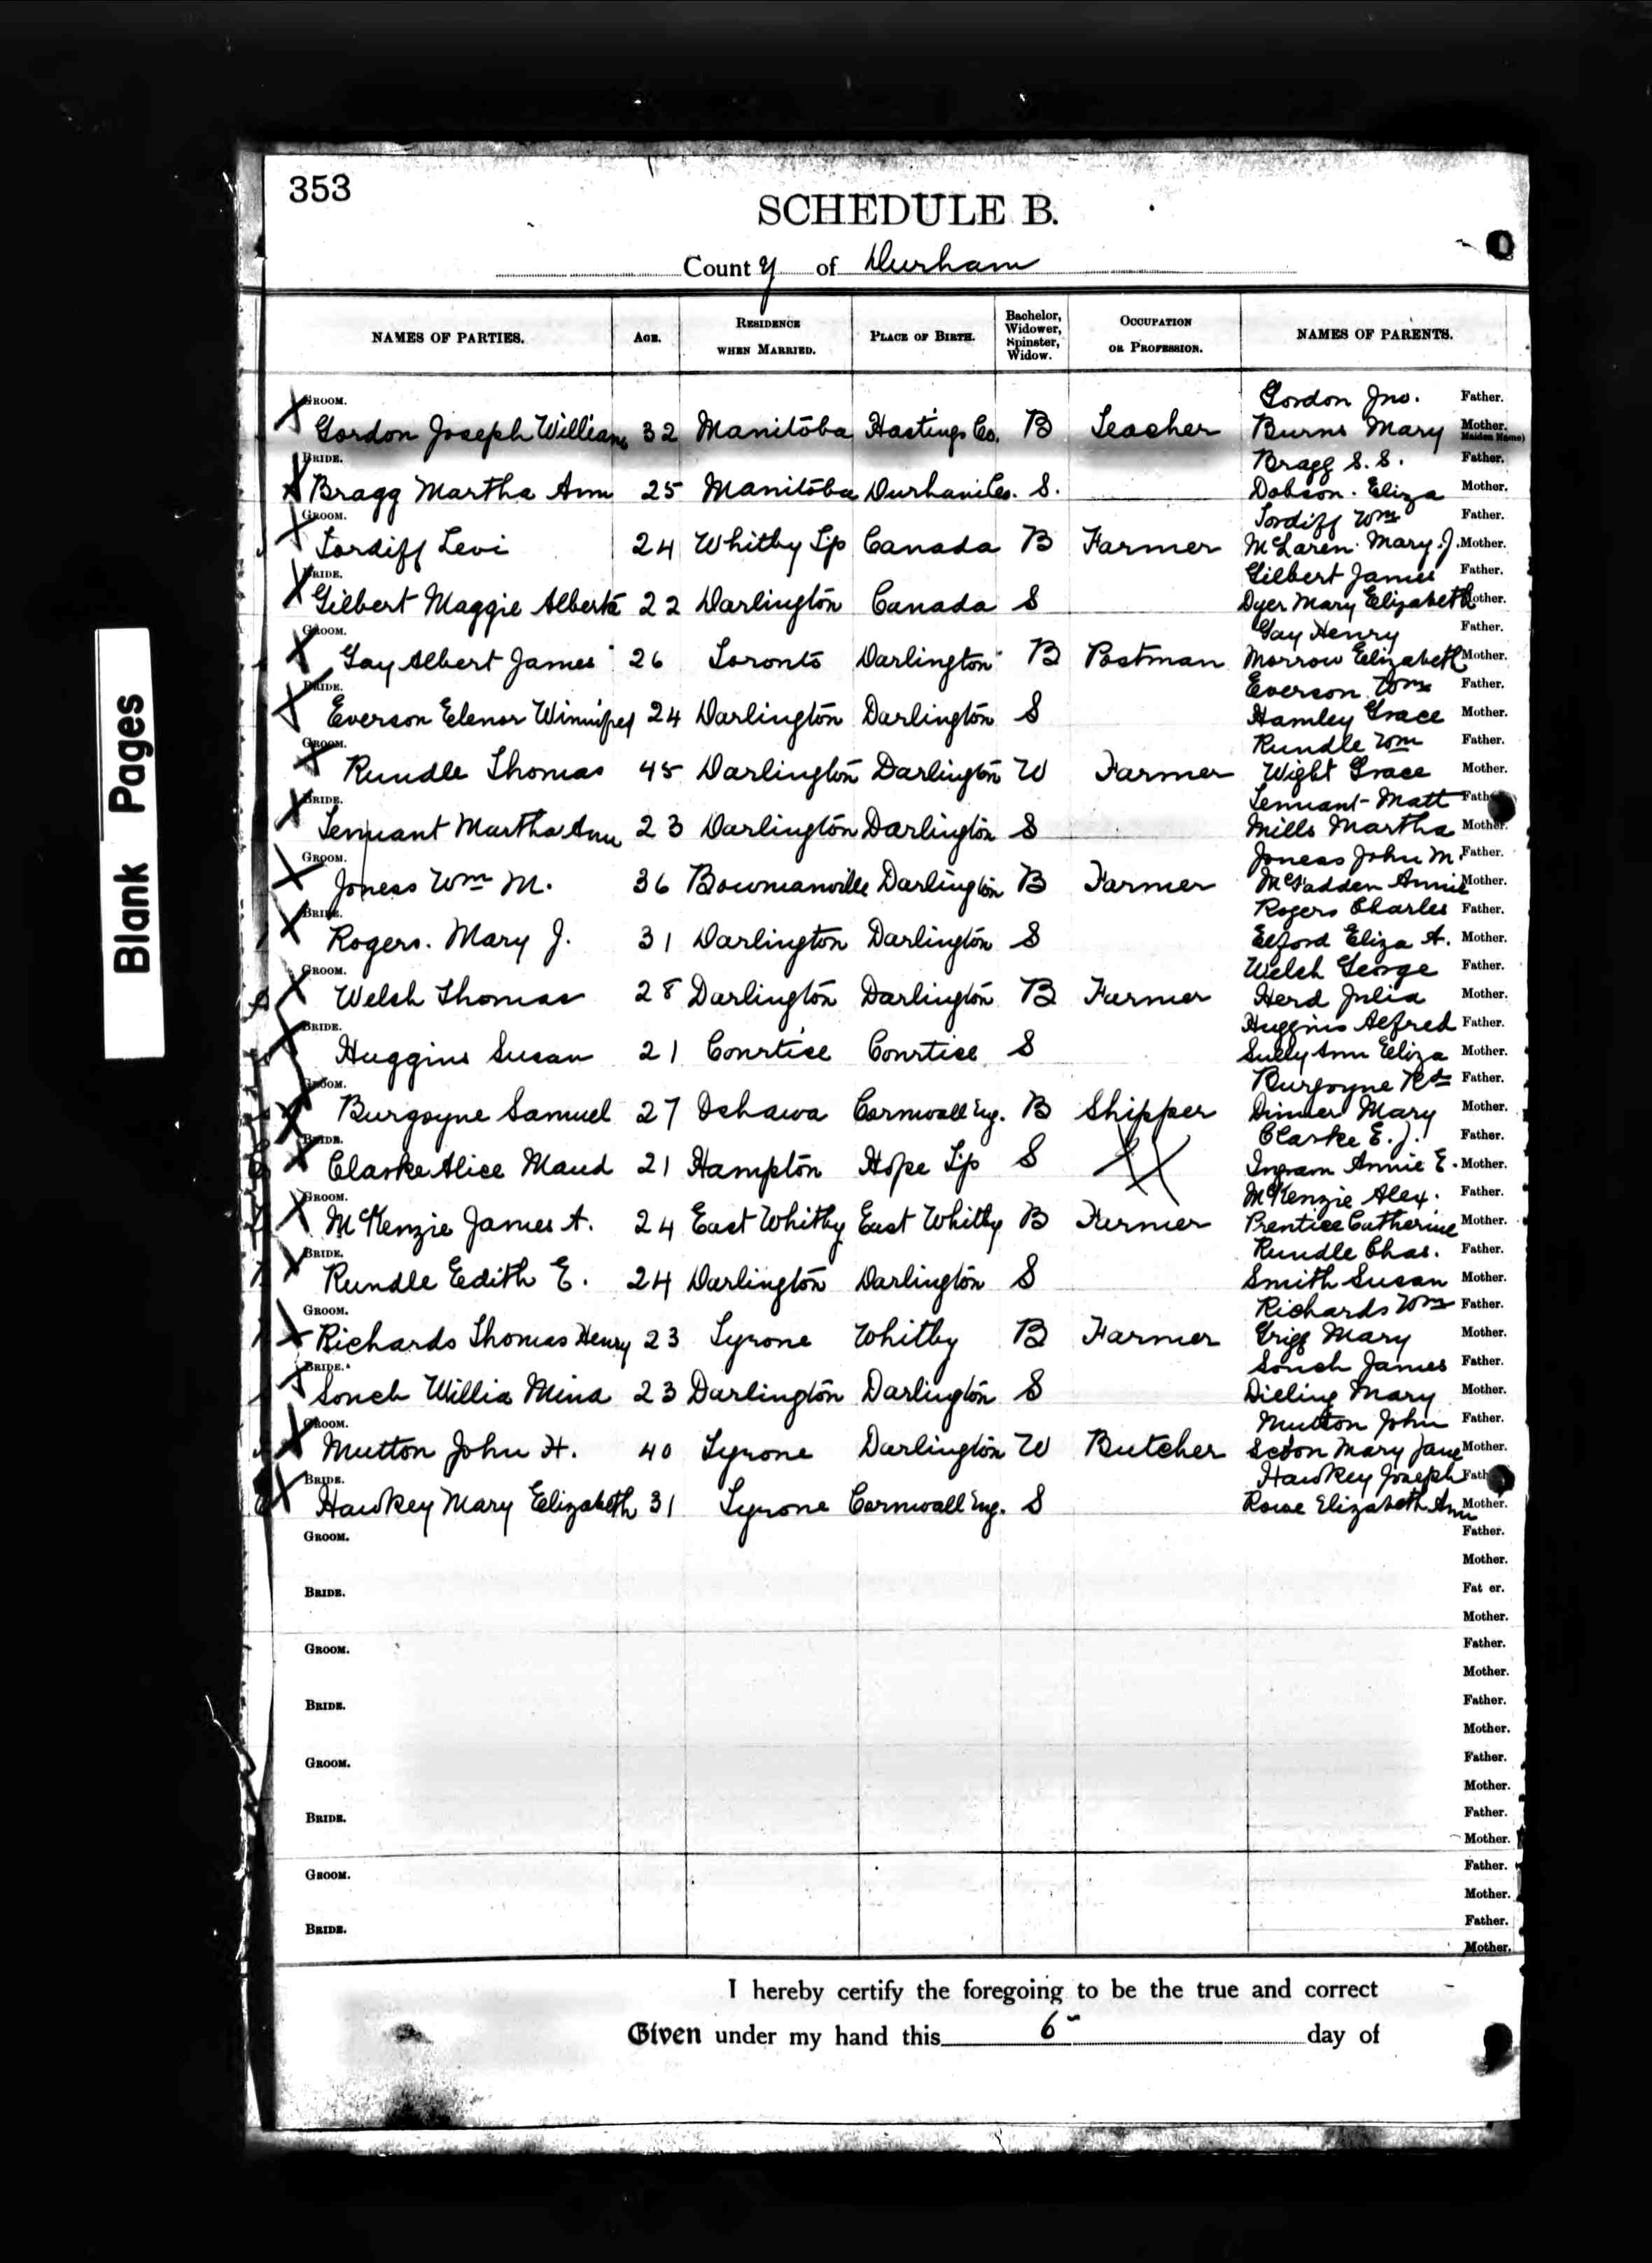 353
SCHEDULE B.
County of Durham
NAMES OF PARTIES. AGE. RESIDENCE WHEN MARRIED. PLACE OF BIRTH. Bachelor, Widower, Spinster, Widow. OCCUPATION OR PROFESSION. NAMES OF PARENTS.
GROOM. Gordon Jno. Father.
Gordon Joseph William 32 Manitoba Hastings Co. B Teacher Burns Mary Mother. Maiden Name)
BRIDE. Bragg S. S. Father.
Bragg Martha Ann 25 Manitoba Durham Co. S. Dobson. Eliza Mother.
GROOM. Tordiff Wm Father.
Tordiff Levi 24 Whitby Tp Canada B Farmer McLaren. Mary. J. Mother.
BRIDE. Gilbert James Father.
Gilbert Maggie Alberta 22 Darlington Canada S Dyer Mary Elizabeth Mother.
GROOM. Gay Henry Father.
Gay Albert James 26 Toronto Darlington B Postman Morrow Elizabeth Mother.
BRIDE. Everson Wm Father.
Everson Elenor Winnifred 24 Darlington Darlington S Hamley Grace Mother.
GROOM. Rundle Wm Father.
Rundle Thomas 45 Darlington Darlington W Farmer Wight Grace Mother.
BRIDE. Tennant Matt Father.
Tennant Martha Ann 23 Darlington Darlington S Mills Martha Mother.
GROOM. Joness John M. Father.
Joness Wm M. 36 Bowmanville Darlington B Farmer McFadden Annie Mother.
BRIDE. Rogers Charles Father.
Rogers. Mary J. 31 Darlington Darlington S Elford Eliza A. Mother.
GROOM. Welsh George Father.
Welsh Thomas 28 Darlington Darlington B Farmer Herd Julia Mother.
BRIDE. Huggins Alfred Father.
Huggins Susan 21 Courtice Courtice S Sully Ann Eliza Mother.
GROOM. Burgoyne Rd Father.
Burgoyne Samuel 27 Oshawa Cornwall Eng. B Shipper Dinner Mary Mother.
BRIDE. Clarke E. J. Father.
Clarke Alice Maud 21 Hampton Hope Tp S Ingram Annie E. Mother.
GROOM. McKenzie Alex. Father.
McKenzie James A. 24 East Whitby East Whitby B Farmer Prentice Catherine Mother.
BRIDE. Rundle Chas. Father.
Rundle Edith E. 24 Darlington Darlington S Smith Susan Mother.
GROOM. Richards Wm Father.
Richards Thomas Henry 23 Tyrone Whitby B Farmer Grigg Mary Mother.
BRIDE. Souch James Father.
Souch Willia Mina 23 Darlington Darlington S Mary Mother.
GROOM. Mutton John Father.
Mutton John H. 40 Tyrone Darlington W Butcher Mary Jane Mother.
BRIDE. Hawkey Joseph Father
Hawkey Mary Elizabeth 31 Tyrone Cornwall Eng. S Rowe Elizabeth Ann Mother.
GROOM. Father.
Mother.
BRIDE. Fat er.
Mother.
GROOM. Father.
Mother.
BRIDE. Father.
Mother.
GROOM. Father.
Mother.
BRIDE. Father.
Mother.
GROOM. Father.
Mother.
BRIDE. Father.
Mother.
I hereby certify the foregoing to be the true and correct
Given under my hand this 6 day of
Blank Pages